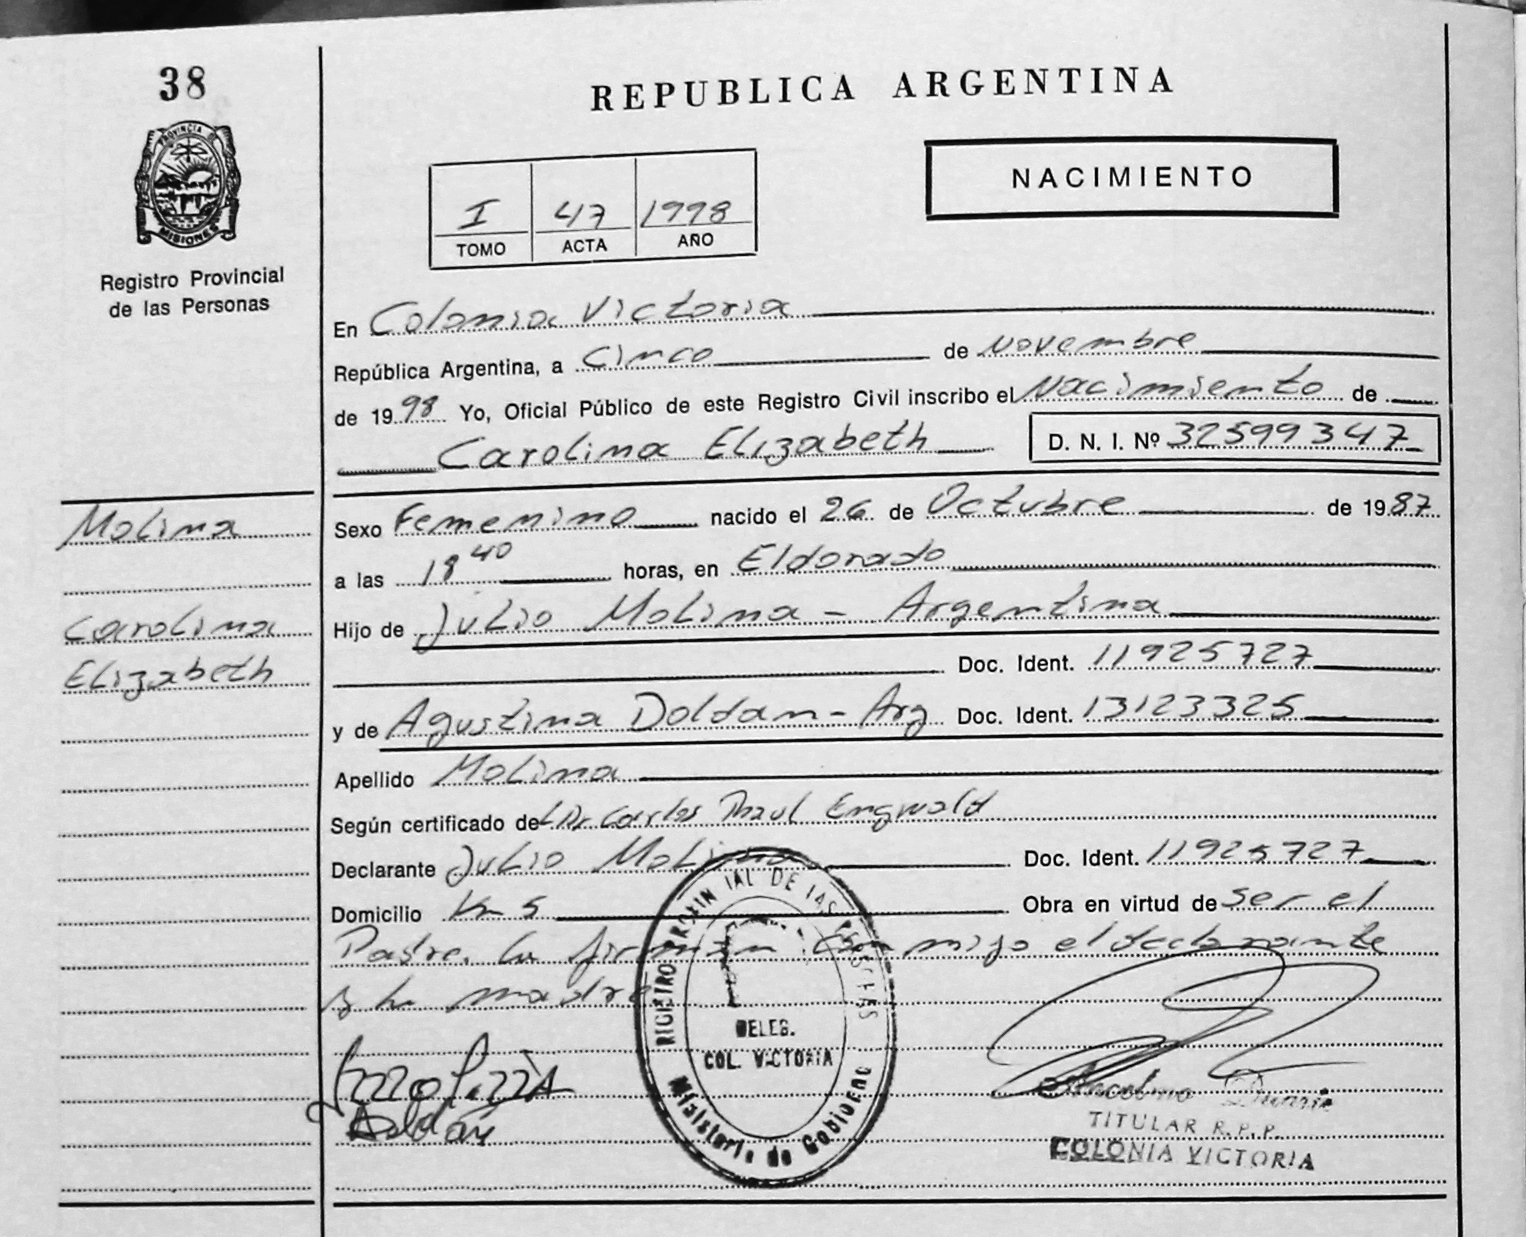 38
PROVINCIA DE
MISIONES
Registro Provincial
de las Personas
REPUBLICA ARGENTINA
NACIMIENTO
I 47 1998
TOMO ACTA AÑO
En Colonia Victoria
República Argentina, a Cinco de Noviembre
de 1998 Yo, Oficial Público de este Registro Civil inscribo el Nacimiento de
Carolina Elizabeth D. N. I. Nº 32599347
Molina
Carolina
Elizabeth
Sexo Femenino nacido el 26 de Octubre de 1987
a las 18 40 horas, en Eldorado
Hijo de Julio Molina - Argentina
Doc. Ident. 11925727
y de Agustina Doldan - Arg Doc. Ident. 13123325
Apellido Molina
Según certificado del Dr. Carlos Raul Engwald
Declarante Julio Molina Doc. Ident. 11925727
Domicilio Km 5 Obra en virtud de ser el
Padre. La firman conmigo el declarante
y la madre
REGISTRO PROVINCIAL DE LAS PERSONAS
DELEG.
COL. VICTORIA
Ministerio de Gobierno
Doldán
Anselmo Duarte
TITULAR R.P.P.
COLONIA VICTORIA